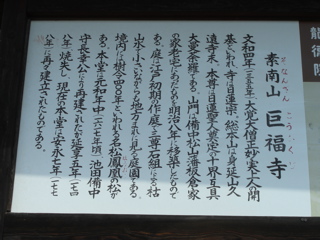 素南山 巨福寺
そなんざん こうふくじ
文和四年(一三五五)、大覚大僧正妙実上人の開
基といわれ、寺は日蓮宗、総本山は身延山久
遠寺末、本尊は日蓮聖人奠定の十界互具
大曼荼羅である。山門は備中松山藩板倉家
の家老宅にあったものを明治八年に移築したもので
ある。庭は江戸初期の作庭で三尊石組による枯
山水、小さいながらも地方まれに見る庭園である。
境内に樹令四〇〇年といわれる名松鳳凰の松が
ある。本堂は元和年中(一六一七年頃)池田備中
守長幸公により再建されたが延享五年(一七四
八年)焼失し、現在の本堂は安永七年(一七七
八年)に再々建立されたものである。
龍徳院